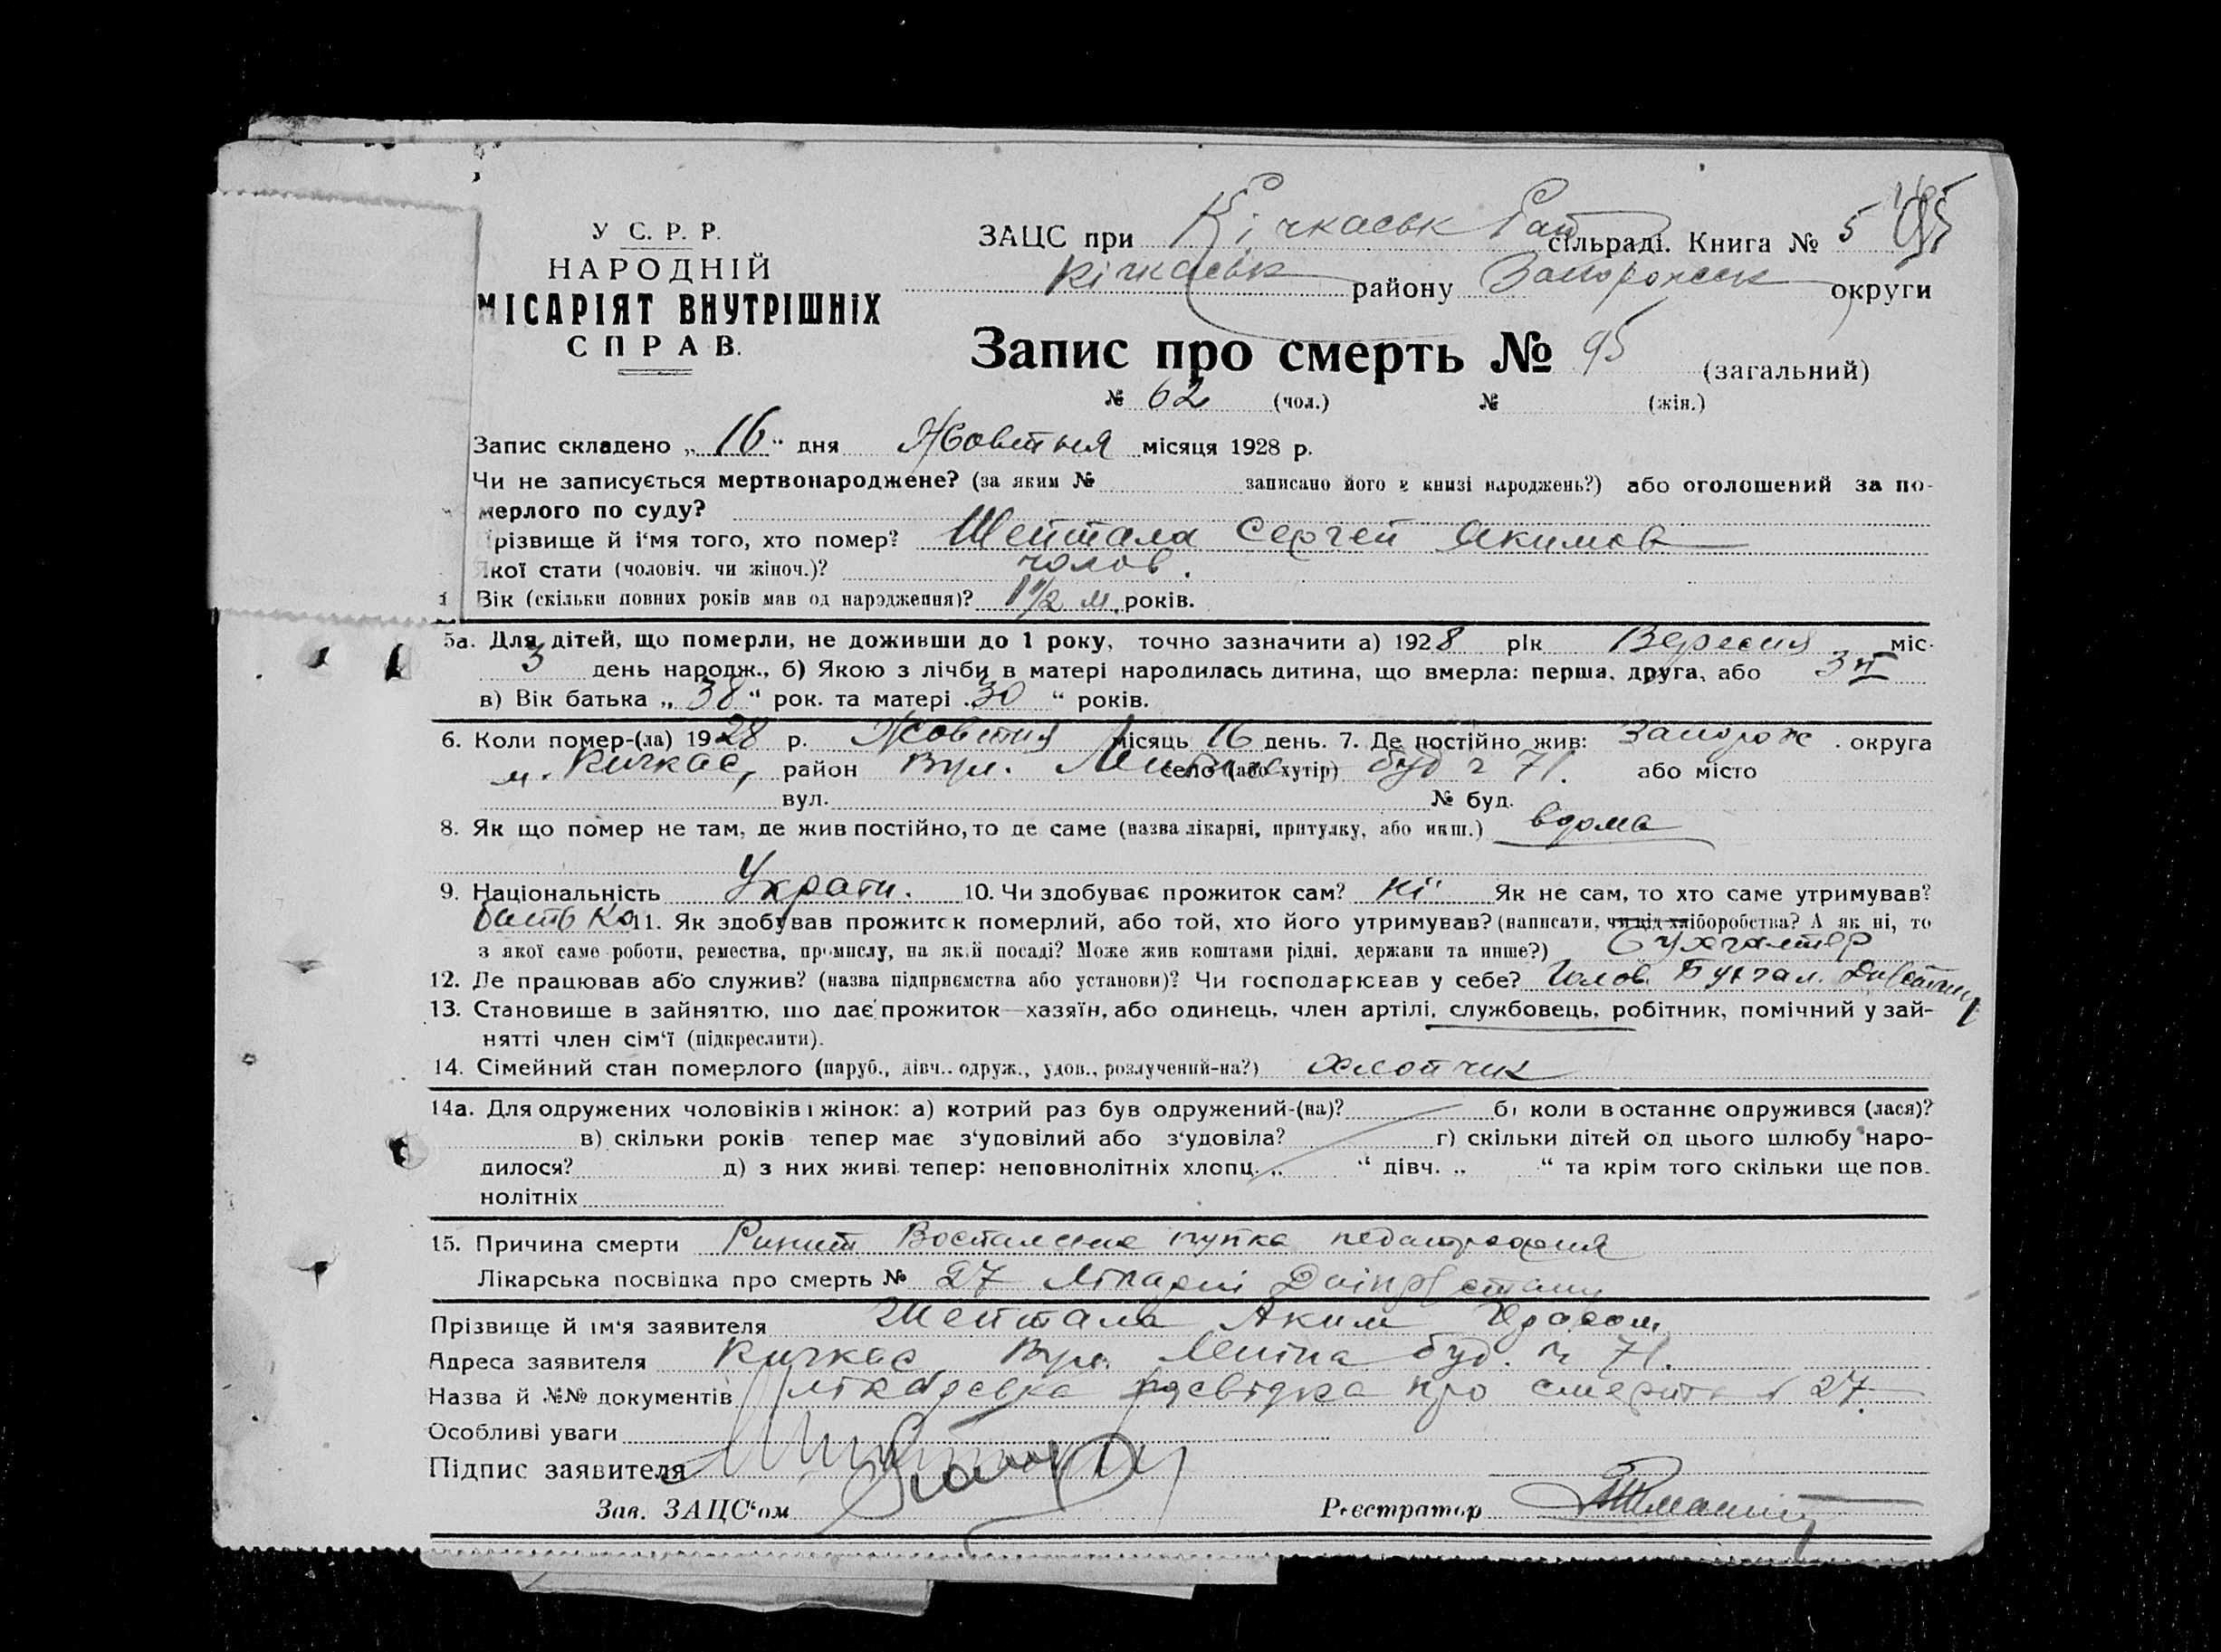 У С. Р. Р.
НАРОДНІЙ
МІСАРІЯТ ВНУТРІШНІХ
СПРАВ.
ЗАЦС при Кічкаськ Рай сільраді. Книга № 5
Кічкаськ району Запорожськ округи
Запис про смерть № 95 (загальний)
№ 62 (чол.) № (жін.)
Запис складено „ 16 “ дня Жовтня місяця 1928 р.
Чи не записується мертвонароджене? (за яким № записано його в книзі народжень?) або оголошений за по-
мерлого по суду?
різвище й і'мя того, хто помер? Шептала Сергей Акимов
кої стати (чоловіч. чи жіноч.)? чолов.
Вік (скільки повних років мав од народження)? 1 1/2 м. років.
5а. Для дітей, що померли, не доживши до 1 року, точно зазначити а) 1928 рік Вересня міс.
3 день народж., б) Якою з лічби в матері народилась дитина, що вмерла: перша, друга, або 3
в) Вік батька „ 38 “ рок. та матері „ 30 “ років.
6. Коли помер-(ла) 1928 р. Жовтня місяць 16 день. 7. Де постійно жив: Запорож. округа
м. Кичкас, район Вул. Леніна село (або хутір) буд ч 71. або місто
вул. № буд.
8. Як що помер не там, де жив постійно, то де саме (назва лікарні, притулку, або инш.) вдома
9. Національність Україн. 10. Чи здобуває прожиток сам? ні Як не сам, то хто саме утримував?
батько 11. Як здобував прожиток померлий, або той, хто його утримував? (написати, чи від хліборобства? А як ні, то
з якої саме роботи, ремества, промислу, на якій посаді? Може жив коштами рідні, держави та инше?) Бухгалтер
12. Де працював або служив? (назва підприємства або установи)? Чи господарював у себе? Голов. Бухгал.
13. Становище в зайняттю, що дає прожиток—хазяїн, або одинець, член артілі, службовець, робітник, помічний у зай-
нятті член сім'ї (підкреслити).
14. Сімейний стан померлого (паруб., дівч.. одруж., удов., розлучений-на?) хлопчик
14а. Для одружених чоловіків і жінок: а) котрий раз був одружений-(на)? б) коли востаннє одружився (лася)?
в) скільки років тепер має з'удовілий або з'удовіла? г) скільки дітей од цього шлюбу наро-
дилося? д) з них живі тепер: неповнолітніх хлопц. „ “ дівч. „ “ та крім того скільки ще пов.
нолітніх
15. Причина смерти Ринит Воспаление пупка
Лікарська посвідка про смерть № 27 Лікарні
Прізвище й ім'я заявителя Шептала Аким
Адреса заявителя Кичкас Вул. Леніна буд. ч 71.
Назва й №№ документів лікарська посвідка про смерть № 27
Особливі уваги
Підпис заявителя
Зав. ЗАЦС'ом
Реєстратор